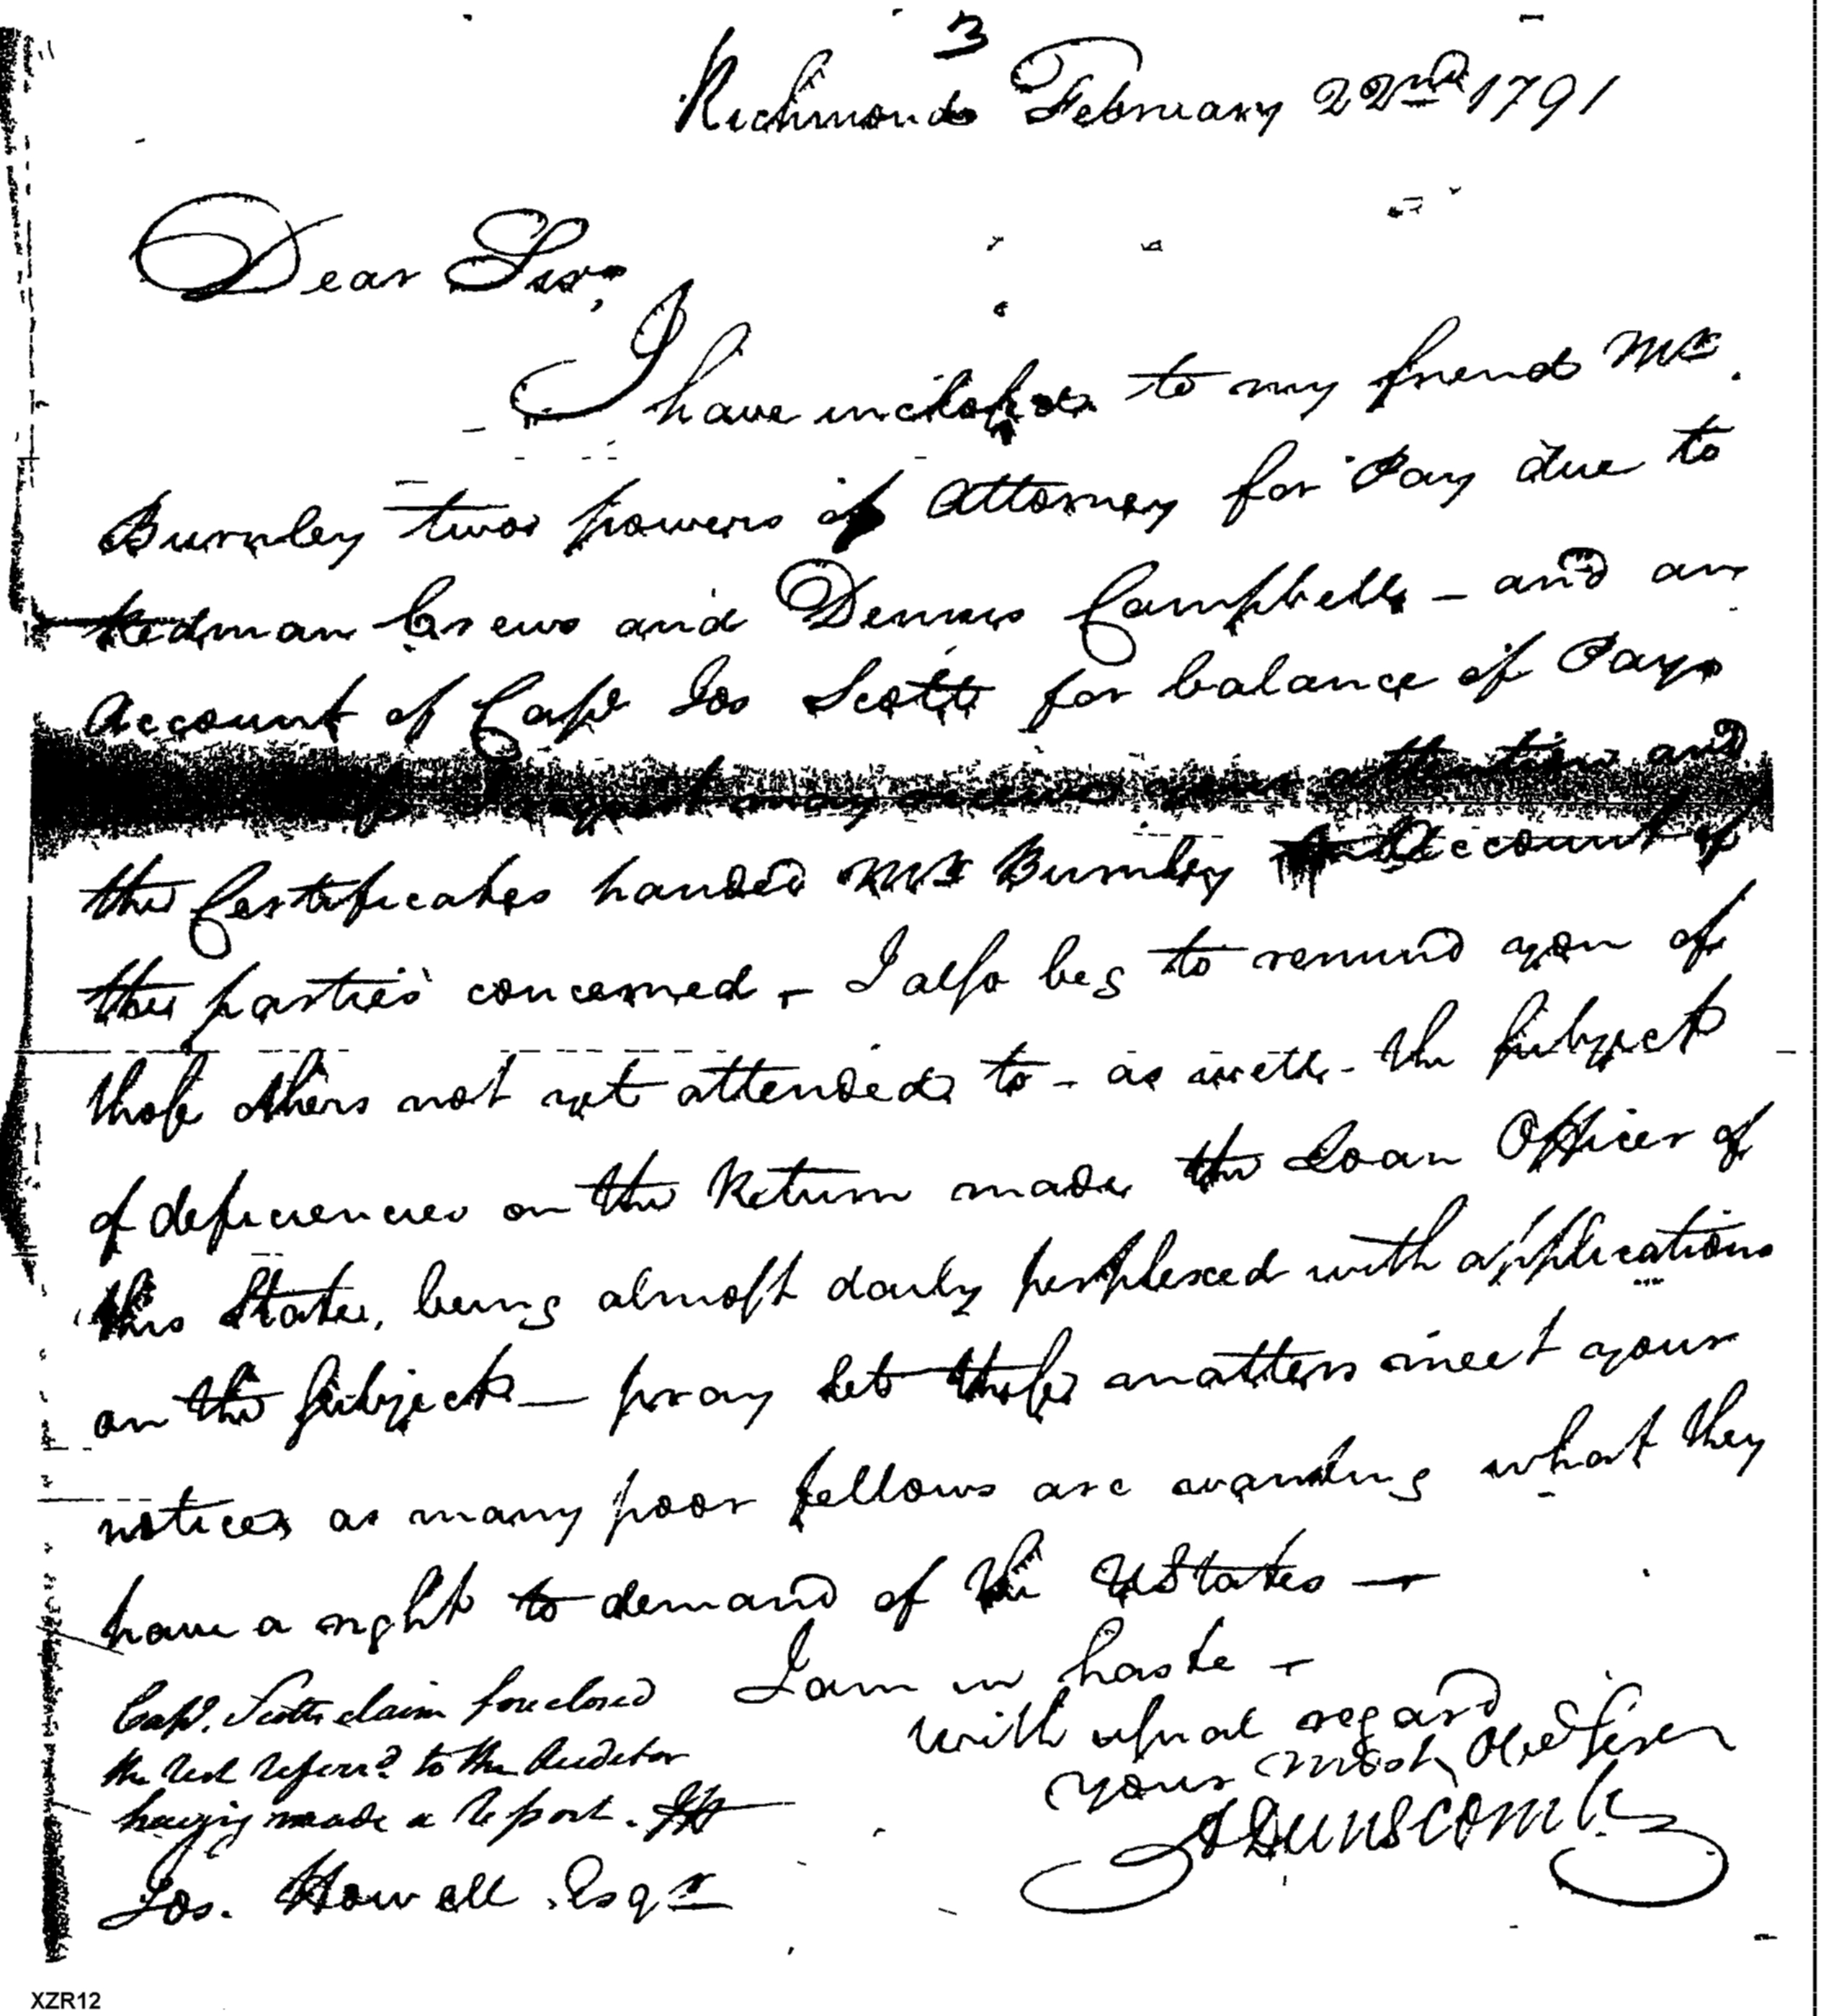 3
Richmond February 22nd 1791
Dear Sir,
I have inclosed to my friend Mr.
Burnley two powers of Attorney for Pay due to
Redman Crews and Dennis Campbell - and an
Account of Capt Jos Scott for balance of Pay
I request may receive your attention and
the Certificates handed Mr Burnley Account of
the parties concerned - I also beg to remind you of
those others not yet attended to - as well - the subject
of deficiencies on the Return made the Loan Officer of
this State, being almost daily perplexed with applications
on the subject — pray let these matters meet your
notice as many poor fellows are wanting what they
have a right to demand of the UStates —
I am in haste -
with usual regard
your most Obed Serv
A Dunscomb
Capt. Scotts claim foreclosed
the rest referrd. to the Auditor
having made a report. JH
Jos. Howell Esqr
XZR12